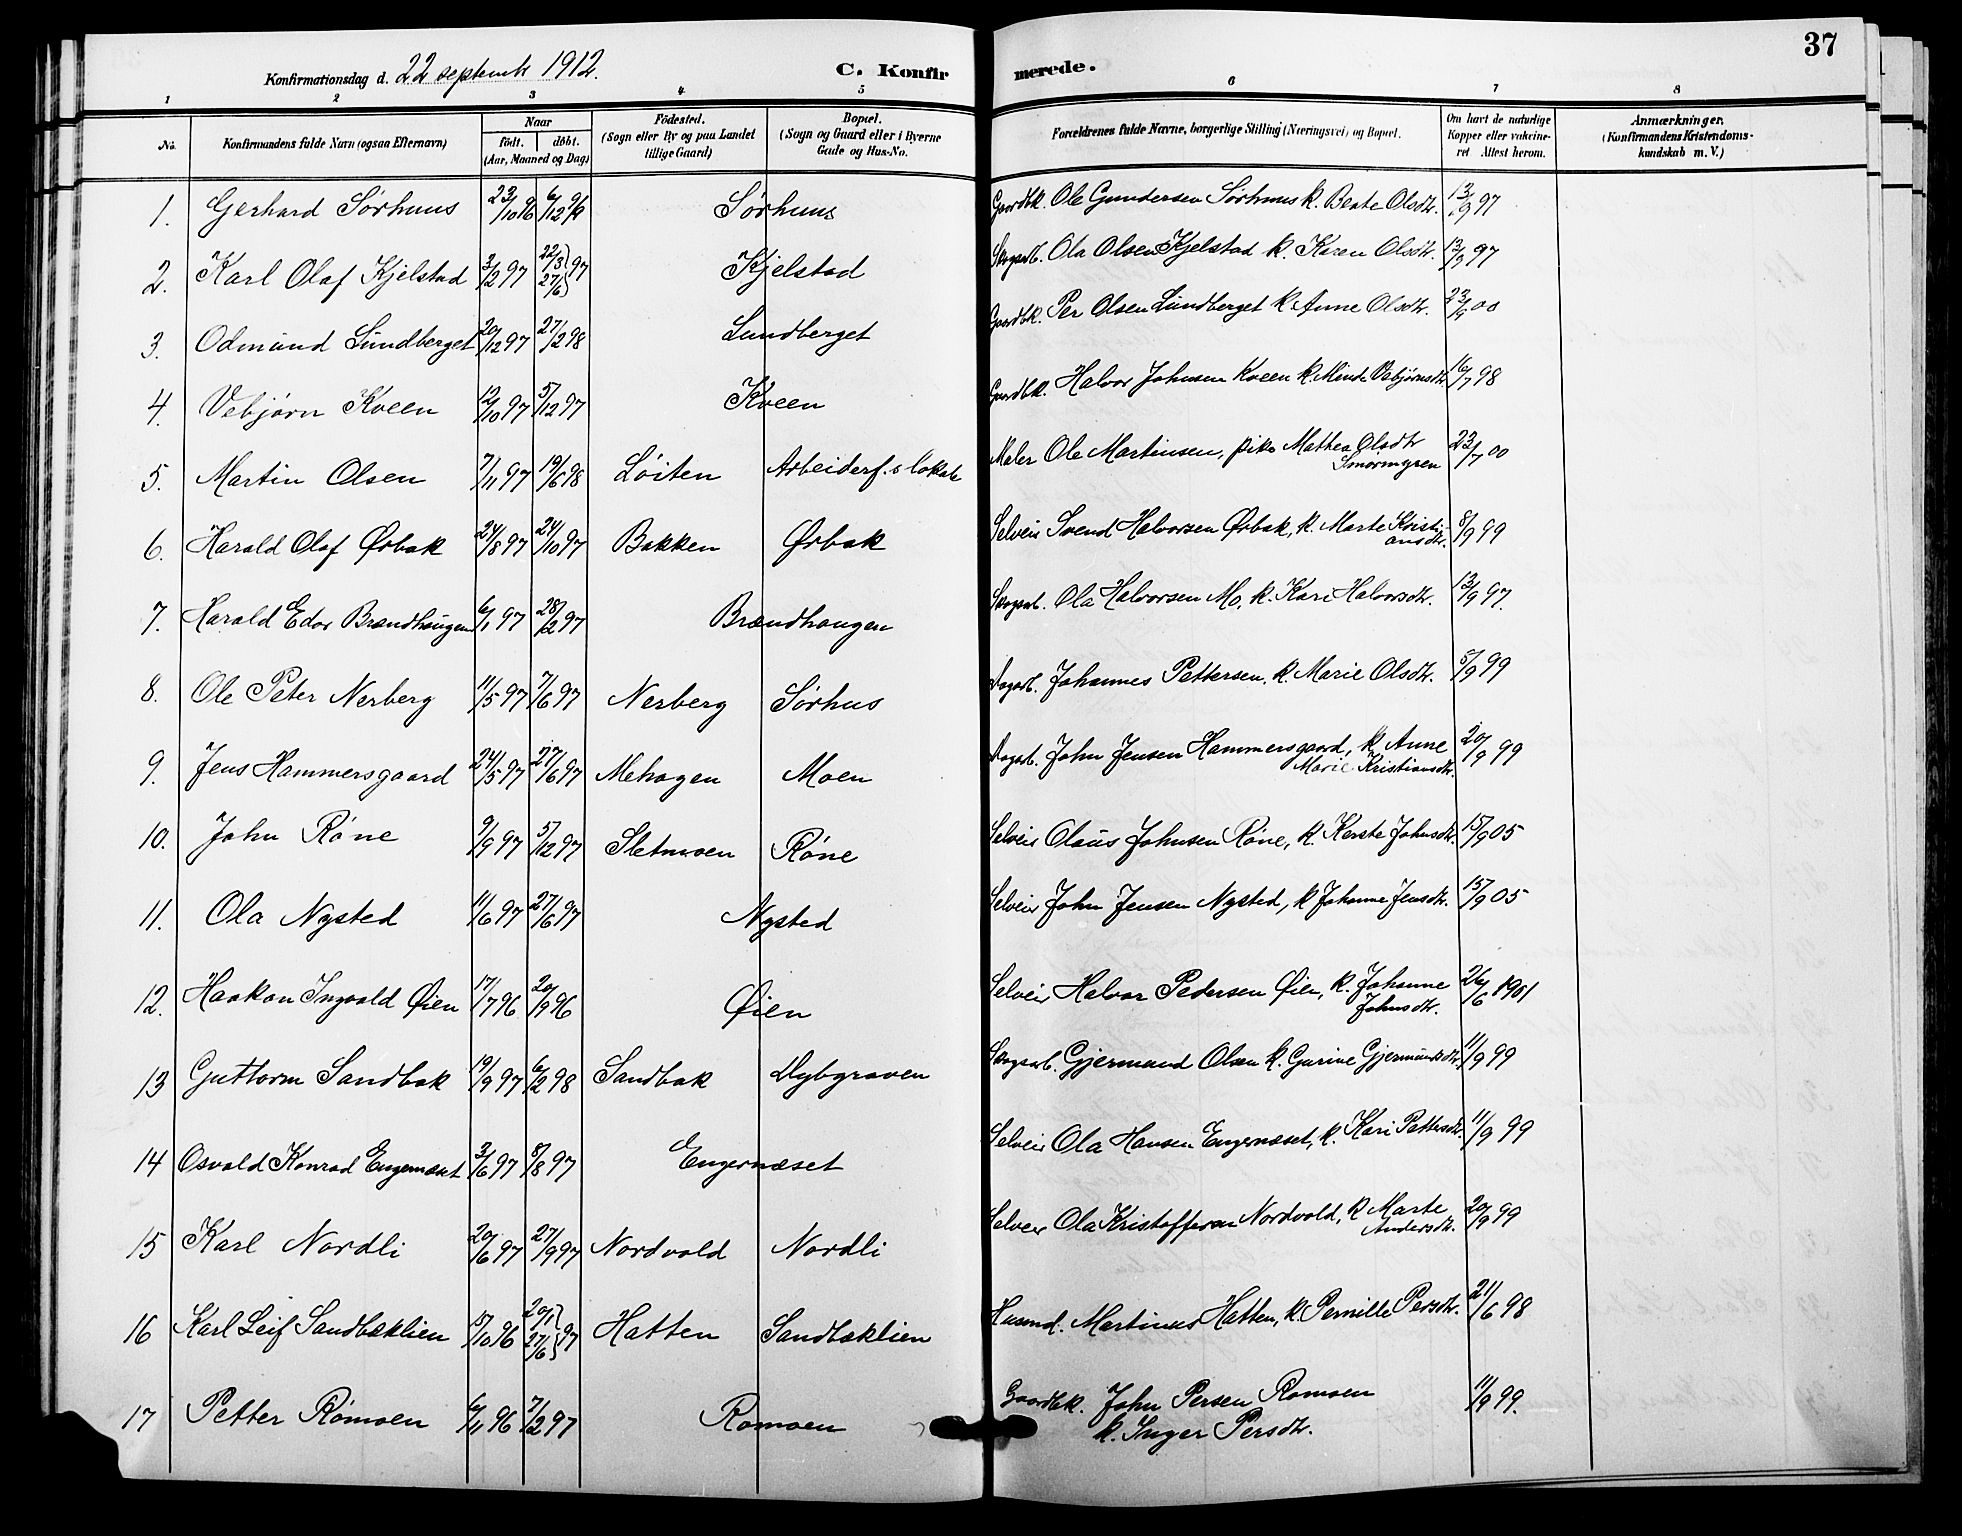 37
Konfirmationsdag d. 22 septemb 1912. C. Konfirmerede.
1 2 3 4 5 6 7 8
No. Konfirmandens fulde Navn (ogsaa Efternavn) Naar født. døbt. (Aar, Maaned og Dag) Fødested. (Sogn eller By og paa Landet tillige Gaard) Bopæl. (Sogn og Gaard eller i Byerne Gade og Hus-No. Forældrenes fulde Navne, borgerlige Stilling (Næringsvei) og Bopæl. Om havt de naturlige Kopper eller vaccineret Attest herom. Anmærkninger. (Konfirmandens Kristendomskundskab m. V.)
1. Gerhard Sørhuus 23/10 96 6/12 96 Sørhuus Gaardbk. Ole Gundersen Sørhuus k. Beate Olsdtr. 13/9 97
2. Karl Olaf Kjelstad 3/2 97 22/3 27/6 } 97 Kjelstad Skogsarb. Ola Olsen Kjelstad k. Karen Olsdtr. 13/9 97
3. Odmund Lundberget 20/12 97 27/2 98 Lundberget Gaardbk. Per Olsen Lundberget k. Anne Olsdtr. 23/9 00
4. Vebjørn Kveen 12/10 97 5/12 97 Kveen Gaardbk. Halvor Johnsen Kveen k. Minda Vebjørnsdtr. 16/7 98
5. Martin Olsen 7/11 97 19/6 98 Løiten Arbeiderf.s lokale Maler Ole Martinsen, pike Mathea Olsdtr
Smørmyren 23/7 00
6. Harald Olaf Ørbak 24/8 97 24/10 97 Bakken Ørbak Selveier Svend Halvorsen Ørbak, k. Marte Kristiansdtr. 8/9 99
7. Harald Edor Brændhaugen 6/1 97 28/2 97 Brændhaugen Skogsarb. Ola Halvorsen Mo, k. Kari Halvorsdtr. 13/9 97.
8. Ole Peter Nerberg 11/5 97 7/6 97 Nerberg Sørhus Dagarb. Johannes Pettersen, k. Marie Olsdtr. 5/9 99
9. Jens Hammersgaard 24/5 97 27/6 97 Mehagen Moen Dagarb. John Jensen Hammersgaard, k. Anne
Marie Kristiansdtr. 20/9 99
10. John Røne 9/9 97 5/12 97 Sletmoen Røne Selveier Olaus Johnsen Røne, k. Kerste Johnsdtr. 15/9 05
11. Ola Nysted 11/6 97 27/6 97 Nysted Selveier John Jensen Nysted, k Johanne Jensdtr. 15/9 05
12. Haakon Ingvald Øien 17/7 96 20/9 96 Øien Selveier Halvor Pedersen Øien, k. Johanne
Johnsdtr. 26/6 1901
13 Guttorm Sandbak 19/9 97 6/2 98 Sandbak Dybgraven Skogsarb. Gjermund Olsen k. Gurine Gjermundsdtr. 11/9 99
14 Osvald Konrad Engernæset 3/6 97 8/8 97 Engernæset Selveier Ola Hansen Engernæset, k. Kari Pettersdtr. 11/9 99
15 Karl Nordli 20/6 97 27/9 97 Nordvold Nordli Selveier Ola Kristoffersen Nordvold, k Marte
Andersdtr. 20/9 99
16 Karl Leif Sandbæklien 15/10 96 20/1 27/6 } 97 Hatten Sandbæklien Husmd. Martinus Hatten, k. Pernille Persdtr. 21/6 98
17 Petter Rømoen 6/11 96 7/2 97 Romoen Gaardbk. John Persen Romoen
k. Inger Persdtr. 11/9 99.